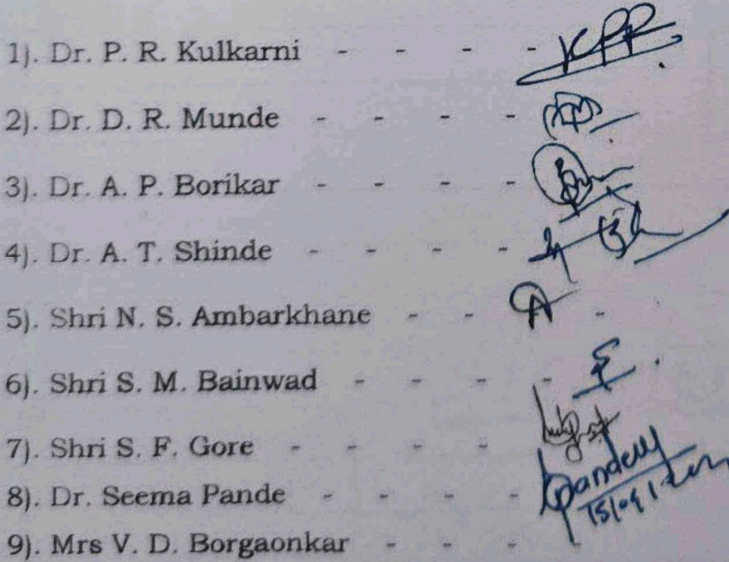 1). Dr. P. R. Kulkarni - - - - KPR
2). Dr. D. R. Munde - - - -
3). Dr. A. P. Borikar - - - -
4). Dr. A. T. Shinde - - - -
5). Shri N. S. Ambarkhane - - -
6). Shri S. M. Bainwad - - - -
7). Shri S. F. Gore - - - -
8). Dr. Seema Pande - - - -
9). Mrs V. D. Borgaonkar - - - -